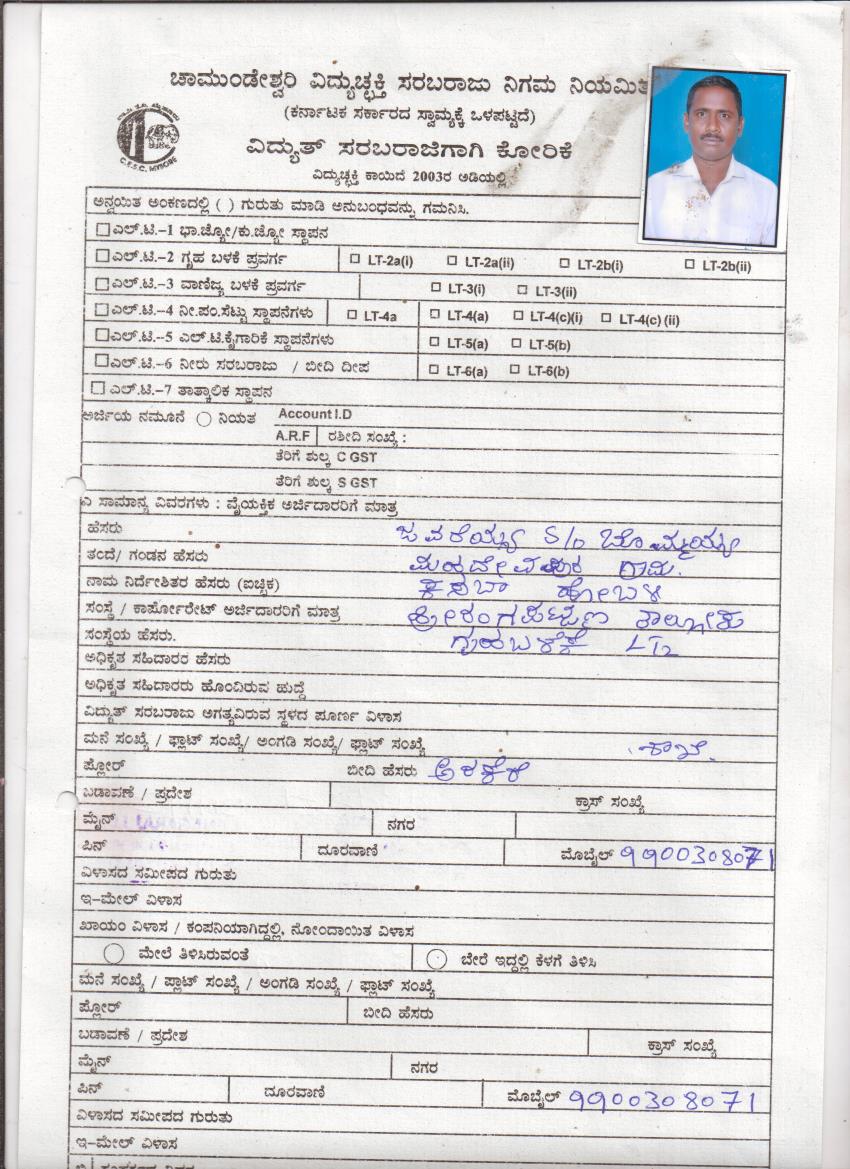 ಚಾಮುಂಡೇಶ್ವರಿ ವಿದ್ಯುಚ್ಛಕ್ತಿ ಸರಬರಾಜು ನಿಗಮ ನಿಯಮಿತ
(ಕರ್ನಾಟಕ ಸರ್ಕಾರದ ಸ್ವಾಮ್ಯಕ್ಕೆ ಒಳಪಟ್ಟಿದೆ)
C.E.S.C. MYSORE
ವಿದ್ಯುತ್ ಸರಬರಾಜಿಗಾಗಿ ಕೋರಿಕೆ
ವಿದ್ಯುಚ್ಛಕ್ತಿ ಕಾಯಿದೆ 2003ರ ಅಡಿಯಲ್ಲಿ
ಅನ್ವಯಿತ ಅಂಕಣದಲ್ಲಿ ( ) ಗುರುತು ಮಾಡಿ ಅನುಬಂಧವನ್ನು ಗಮನಿಸಿ.
ಎಲ್.ಟಿ.-1 ಭಾ.ಜ್ಯೋ/ಕು.ಜ್ಯೋ ಸ್ಥಾಪನ
ಎಲ್.ಟಿ.-2 ಗೃಹ ಬಳಕೆ ಪ್ರವರ್ಗ LT-2a(i) LT-2a(ii) LT-2b(i) LT-2b(ii)
ಎಲ್.ಟಿ.-3 ವಾಣಿಜ್ಯ ಬಳಕೆ ಪ್ರವರ್ಗ LT-3(i) LT-3(ii)
ಎಲ್.ಟಿ.-4 ನೀ.ಪಂ.ಸೆಟ್ಟು ಸ್ಥಾಪನೆಗಳು LT-4a LT-4(a) LT-4(c)(i) LT-4(c) (ii)
ಎಲ್.ಟಿ.-5 ಎಲ್.ಟಿ.ಕೈಗಾರಿಕೆ ಸ್ಥಾಪನೆಗಳು LT-5(a) LT-5(b)
ಎಲ್.ಟಿ.-6 ನೀರು ಸರಬರಾಜು / ಬೀದಿ ದೀಪ LT-6(a) LT-6(b)
ಎಲ್.ಟಿ.-7 ತಾತ್ಕಾಲಿಕ ಸ್ಥಾಪನ
ಅರ್ಜಿಯ ನಮೂನೆ ನಿಯತ Account I.D
A.R.F ರಶೀದಿ ಸಂಖ್ಯೆ :
ತೆರಿಗೆ ಶುಲ್ಕ C GST
ತೆರಿಗೆ ಶುಲ್ಕ S GST
ಎ ಸಾಮಾನ್ಯ ವಿವರಗಳು : ವೈಯಕ್ತಿಕ ಅರ್ಜಿದಾರರಿಗೆ ಮಾತ್ರ
ಹೆಸರು ಜವರಯ್ಯ S/o ಬೊಮ್ಮಯ್ಯ
ತಂದೆ/ ಗಂಡನ ಹೆಸರು ಮಹದೇವಪುರ ಗ್ರಾಮ.
ನಾಮ ನಿರ್ದೇಶಿತರ ಹೆಸರು (ಐಚ್ಛಿಕ) ಕಸಬಾ ಹೋಬಳಿ
ಸಂಸ್ಥೆ / ಕಾರ್ಪೋರೇಟ್ ಅರ್ಜಿದಾರರಿಗೆ ಮಾತ್ರ ಶ್ರೀರಂಗಪಟ್ಟಣ ತಾಲ್ಲೂಕು
ಸಂಸ್ಥೆಯ ಹೆಸರು. ಗೃಹಬಳಕೆ LT2
ಅಧಿಕೃತ ಸಹಿದಾರರ ಹೆಸರು
ಅಧಿಕೃತ ಸಹಿದಾರರು ಹೊಂದಿರುವ ಹುದ್ದೆ
ವಿದ್ಯುತ್ ಸರಬರಾಜು ಅಗತ್ಯವಿರುವ ಸ್ಥಳದ ಪೂರ್ಣ ವಿಳಾಸ
ಮನೆ ಸಂಖ್ಯೆ / ಫ್ಲಾಟ್ ಸಂಖ್ಯೆ/ ಅಂಗಡಿ ಸಂಖ್ಯೆ/ ಫ್ಲಾಟ್ ಸಂಖ್ಯೆ
ಫ್ಲೋರ್ ಬೀದಿ ಹೆಸರು ಅರಕೆರೆ
ಬಡಾವಣೆ / ಪ್ರದೇಶ ಕ್ರಾಸ್ ಸಂಖ್ಯೆ
ಮೈನ್ ನಗರ
ಪಿನ್ ದೂರವಾಣಿ ಮೊಬೈಲ್ 9900308071
ವಿಳಾಸದ ಸಮೀಪದ ಗುರುತು
ಇ-ಮೇಲ್ ವಿಳಾಸ
ಖಾಯಂ ವಿಳಾಸ / ಕಂಪನಿಯಾಗಿದ್ದಲ್ಲಿ, ನೋಂದಾಯಿತ ವಿಳಾಸ
ಮೇಲೆ ತಿಳಿಸಿರುವಂತೆ ಬೇರೆ ಇದ್ದಲ್ಲಿ ಕೆಳಗೆ ತಿಳಿಸಿ
ಮನೆ ಸಂಖ್ಯೆ / ಪ್ಲಾಟ್ ಸಂಖ್ಯೆ / ಅಂಗಡಿ ಸಂಖ್ಯೆ / ಫ್ಲಾಟ್ ಸಂಖ್ಯೆ
ಫ್ಲೋರ್ ಬೀದಿ ಹೆಸರು
ಬಡಾವಣೆ / ಪ್ರದೇಶ ಕ್ರಾಸ್ ಸಂಖ್ಯೆ
ಮೈನ್ ನಗರ
ಪಿನ್ ದೂರವಾಣಿ ಮೊಬೈಲ್ 9900308071
ವಿಳಾಸದ ಸಮೀಪದ ಗುರುತು
ಇ-ಮೇಲ್ ವಿಳಾಸ